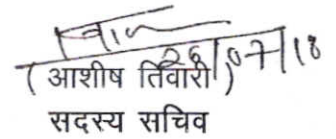 26/07/18
( आशीष तिवारी )
सदस्य सचिव